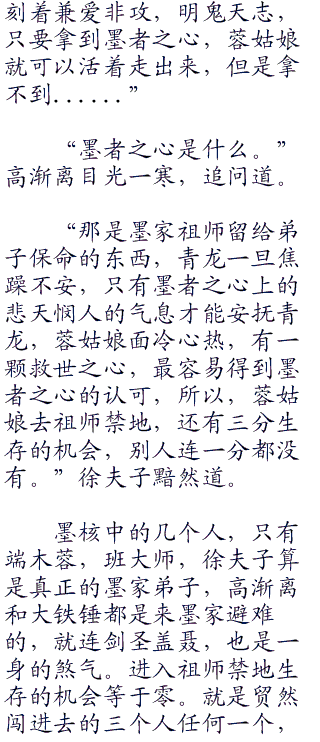 刻着兼爱非攻，明鬼天志，
只要拿到墨者之心，蓉姑娘
就可以活着走出来，但是拿
不到......”
“墨者之心是什么。”
高渐离目光一寒，追问道。
“那是墨家祖师留给弟
子保命的东西，青龙一旦焦
躁不安，只有墨者之心上的
悲天悯人的气息才能安抚青
龙，蓉姑娘面冷心热，有一
颗救世之心，最容易得到墨
者之心的认可，所以，蓉姑
娘去祖师禁地，还有三分生
存的机会，别人连一分都没
有。”徐夫子黯然道。
墨核中的几个人，只有
端木蓉，班大师，徐夫子算
是真正的墨家弟子，高渐离
和大铁锤都是来墨家避难
的，就连剑圣盖聂，也是一
身的煞气。进入祖师禁地生
存的机会等于零。就是贸然
闯进去的三个人任何一个，